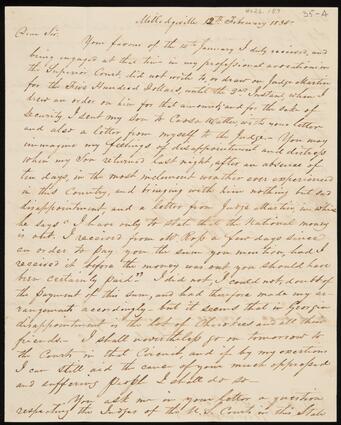 Milledgeville 12th February 1835
35-A
Dear Sir,
Your favour of the 10th January I duly received, and
being engaged at that time in my professional avocation in
the Superior Court, did not write to or draw on Judge Martin
for the Five Hundred Dollars, until the 3rd Instant when I
drew an order on him for that amount, and for the sake of
Security I sent my Son to with your letter
and also a letter from myself to the Judge. You may
immagine my feelings of disappointment and distress
when my Son returned last night, after an absence of
ten days, in the most inclement weather ever experienced
in this Country, and bringing with him nothing but sad
disappointment, and a letter from Judge Martin, in which
he says "I have only to state that the National money
is out. I received from Mr Ross a few days since
an order to pay you the sum you mention, had I
received it before the money was out you should have
been certainly paid." I did not, I could not, doubt of
the payment of this sum, and had therefore made my ar-
rangements accordingly. but it seems that in Georgia
disappointment is the lot of Cherokees and all their
friends. I shall nevertheless go on tomorrow to
the Courts in that Circuit, and if by my exertions
I can still aid the cause of your much oppressed
and suffering people I shall do so.
You ask me in your letter a question
respecting the Judges of the U.S. Court in this State